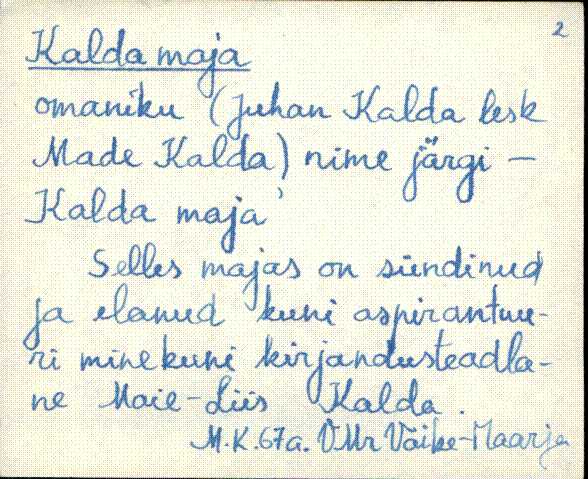 2
Kalda maja
omaniku (Juhan Kalda lesk
Made Kalda) nime järgi –
Kalda maja'
Selles majas on sündinud
ja elanud kuni aspirantuu-
ri minekuni kirjandusteadla-
ne Maie-Liis Kalda.
M.K. 67a. VMr Väike-Maarja